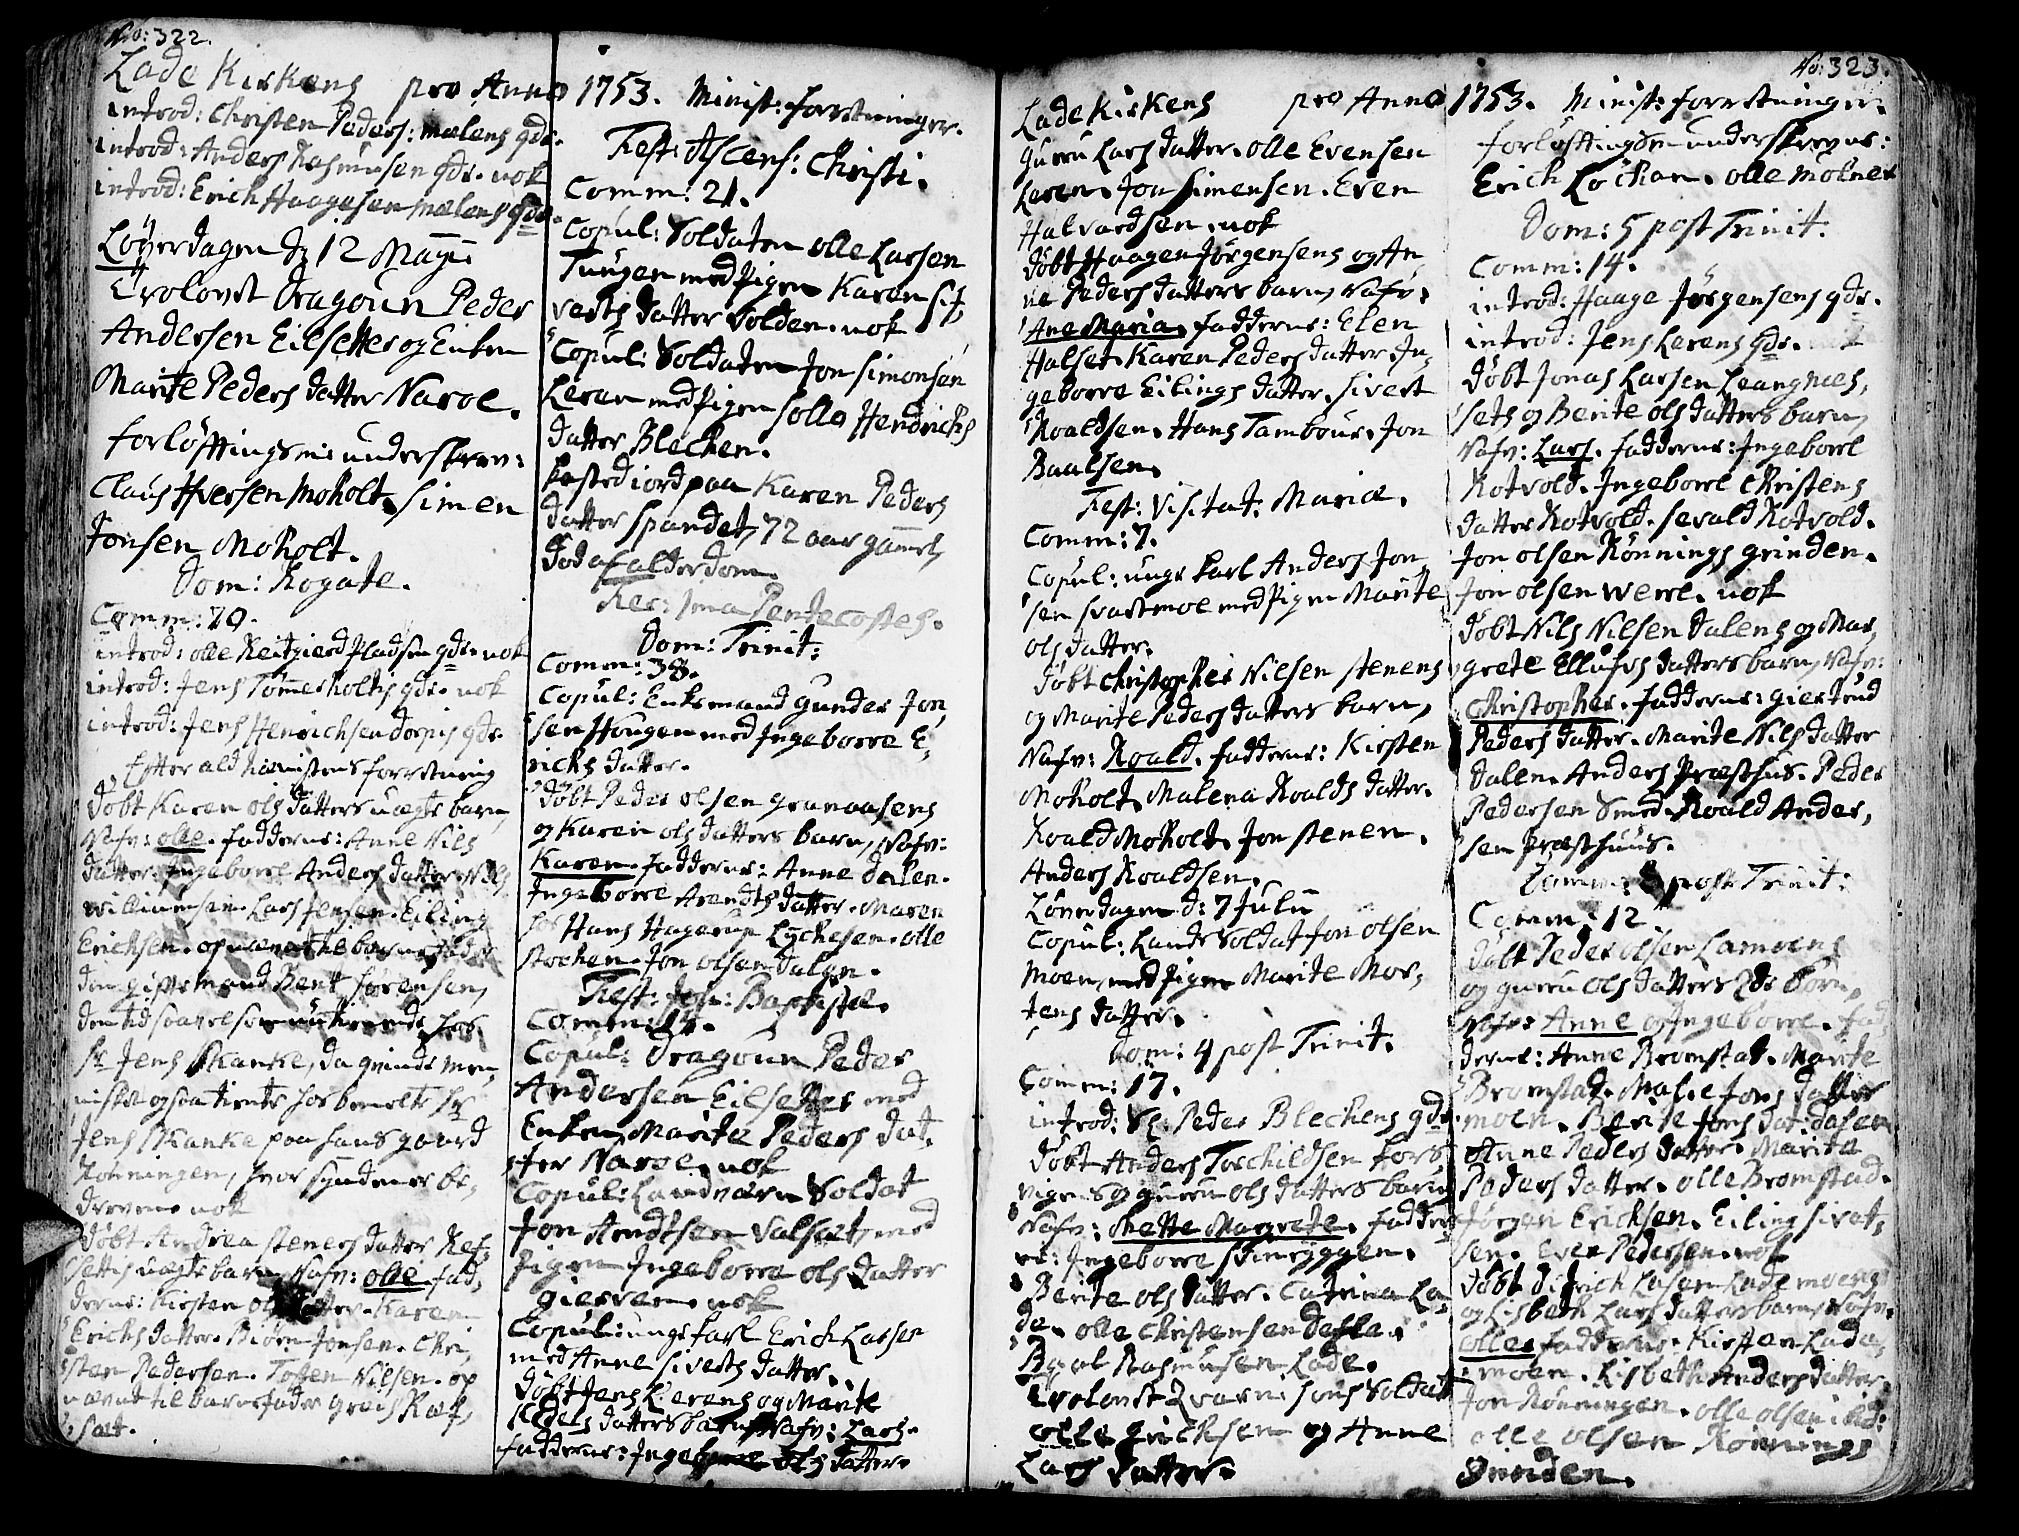 No: 322.
Lade Kirkens pro Anno 1753. Minist: forretninger.
introd: Christen Peders: mælens qde.
introd: Anders Rasmusen qde. nok
introd: Erich Haagensen mælens qde.
Løverdagen d. 12 Maji
Trolovet Dragoun Peder
Andersen Eilsetter og Enken
Marite Peders datter Naroe.
forløftningsm: underskrev:
Claus Iversen Moholt. Simen
Jonsen Moholt.
Dom: Rogate.
Comm: 20.
introd: olle Reitgierd pladsen qde. nok
introd: Jens Tømmerholtis qde. nok
introd: Jens Henrichsen qde.
Efter forretning
døbt Karen ols datters uægte barn,
Nafn: olle. fadderne: Anne Nils
datter. Ingeborre Anders datter. Nils
Willumsen. Lars Jensen. Eiling
Erichsen. barnefader
den gifte mand Bent Sørensen,
den tid
Sr Jens Skanke, da
tiente hos bemelte Sr
Jens Skanke paa hans gaard
Rønningen, hvor synden er be-
dreven nok
døbt Andrea Steners datter Ref-
settis uægte barn, Nafn: olle. fad-
derne: Kirsten ols datter. Karen
Erichs datter. Biørn Jonsen. Chri-
sten Pedersen. Tosten Nilsen. op
nævnt til barnefader Ræf-
sæt.
Fest: Ascens: Christi.
Comm: 21.
Copul: Soldaten olle Larsen
Tungen med Pigen Karen Si-
verts datter Volden. nok
Copul: Soldaten Jon Simonsen
Leran med Pigen Solle Hendrichs
datter Blechen.
kasted iord paa Karen Peders
datter Spandet, 72 aar gammel,
død af alderdom.
Fer: 1ma Pentecostes.
Dom: Trinit:
Comm: 38.
Copul: Enkemand Gunder Jon-
sen Hougen med Ingeborre E-
richs datter.
døbt Peder olsen Granaasens
og Karen ols datters barn, Nafn:
Karen. fadderne: Anne dalen.
Ingeborre Arendts datter. Maren
hos Hans Hagerup Lychesen. olle
Stochen. Jon olsen Dalen.
Fest: Joh: Baptistæ.
Comm: 14.
Copul: Dragoun Peder
Andersen Eilsetter med
Enken Marite Peders dat-
ter Naroe. nok
Copul: Landværn Soldat
Jon Arndtsen Valsæt, med
Pigen Ingeborre ols datter
gierven. nok
Copul: ungkarl Erich Larsen
med Anne Siverts datter.
døbt Jens Lerens og Marite
datters barn, Nafn: Lars.
fadderne: Ingeborre ols datter.
No: 323.
Lade Kirkens pro Anno 1753. Minist: forretninger.
Guru Lars datter. olle Evensen
Leren. Jon Simensen. Even
Halvardsen. nok
døbt Haagen Jørgensens og An-
ne Peders datters barn, Nafn:
Ane Maria. fadderne: Elen
Halset. Karen Peders datter. In-
geborre Eilings datter. Sivert
Roaldsen. Hans Tambour. Jon
Baalsen.
Fest: Visitat: Mariæ.
Comm: 7.
Copul: ungekarl Anders Jon-
sen Svartmoe med Pigen Marite
ols datter.
døbt Christopher Nilsen Stenens
og Marite Peders datters barn,
Nafn: Roald. fadderne: Kirsten
Moholt. Malena Roalds datter.
Roald Moholt. Jon Stenen.
Anders Roaldsen.
Løverdagen d: 7 Julii
Copul: Lands Soldat Jon olsen
Moen, med Pigen Marite Mor-
tens datter.
Dom: 4 post Trinit:
Comm: 17.
introd: Sl: Peder Blechens qde.
døbt Anders Torchildsen Kors-
vigens og guru ols datters barn
Nafn: Mette Margrete. fadder-
ne: Ingeborre Stinryggen.
Berite ols datter. Catrina La-
de. olle Christensen
Rasmusen Lade.
Trolovet Qvarnisons Soldat
olle Erichsen og Anne
Lars datter.
forløftningsm: underskrevne:
Erich Løchan. olle Molner
Dom: 5 post Trinit:
Comm: 14.
introd: Haage Jørgensens qde.
introd: Jens Lerens qde.
døbt Jonas Larsen Leangnæs-
sets og Berite ols datters barn,
Nafn: Lars. fadderne: Ingeborre
Rotvold. Ingeborre Christens
datter Rotvold. Sevald Rotvold.
Jon olsen Rønnings grinden.
Jon olsen Were. nok
døbt Nils Nilsen Dalens og Mar-
grete Ellufs datters barn, Nafn:
Christopher. fadderne: giertrud
Peders datter. Marite Nils datter
dalen. Anders Præsthus. Peder
Pedersen Smed. Roald Ander-
sen Præsthuus.
Domin: 8 post Trinit:
Comm: 12
døbt Peder olsen Lamoens
og guru ols datters 2de børn,
Nafn: Anne og Ingeborre. fad-
derne: Anne Bromstat. Marite
Bromstad. Malie Jons datter
moen. Berite Jons dat: dalen
Anne Peders datter. Marita
Peders datter. olle Bromstad.
Jørgen Erichsen. Eiling Sivert-
sen. Even Pedersen. nok
døbt Didrich Lasen Lademoens
og Lisbeth Lars datters barn, Nafn:
olle. fadderne: Kirsten Lade-
moen. Lisbeth Anders datter.
Jon Rønningen. olle olsen ibid:
olle olsen Rønnings
Grinden.